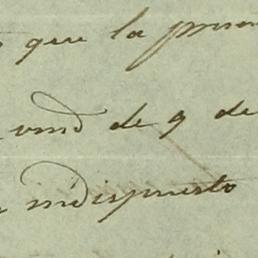 que la
vmd de 9 de
indispuesto